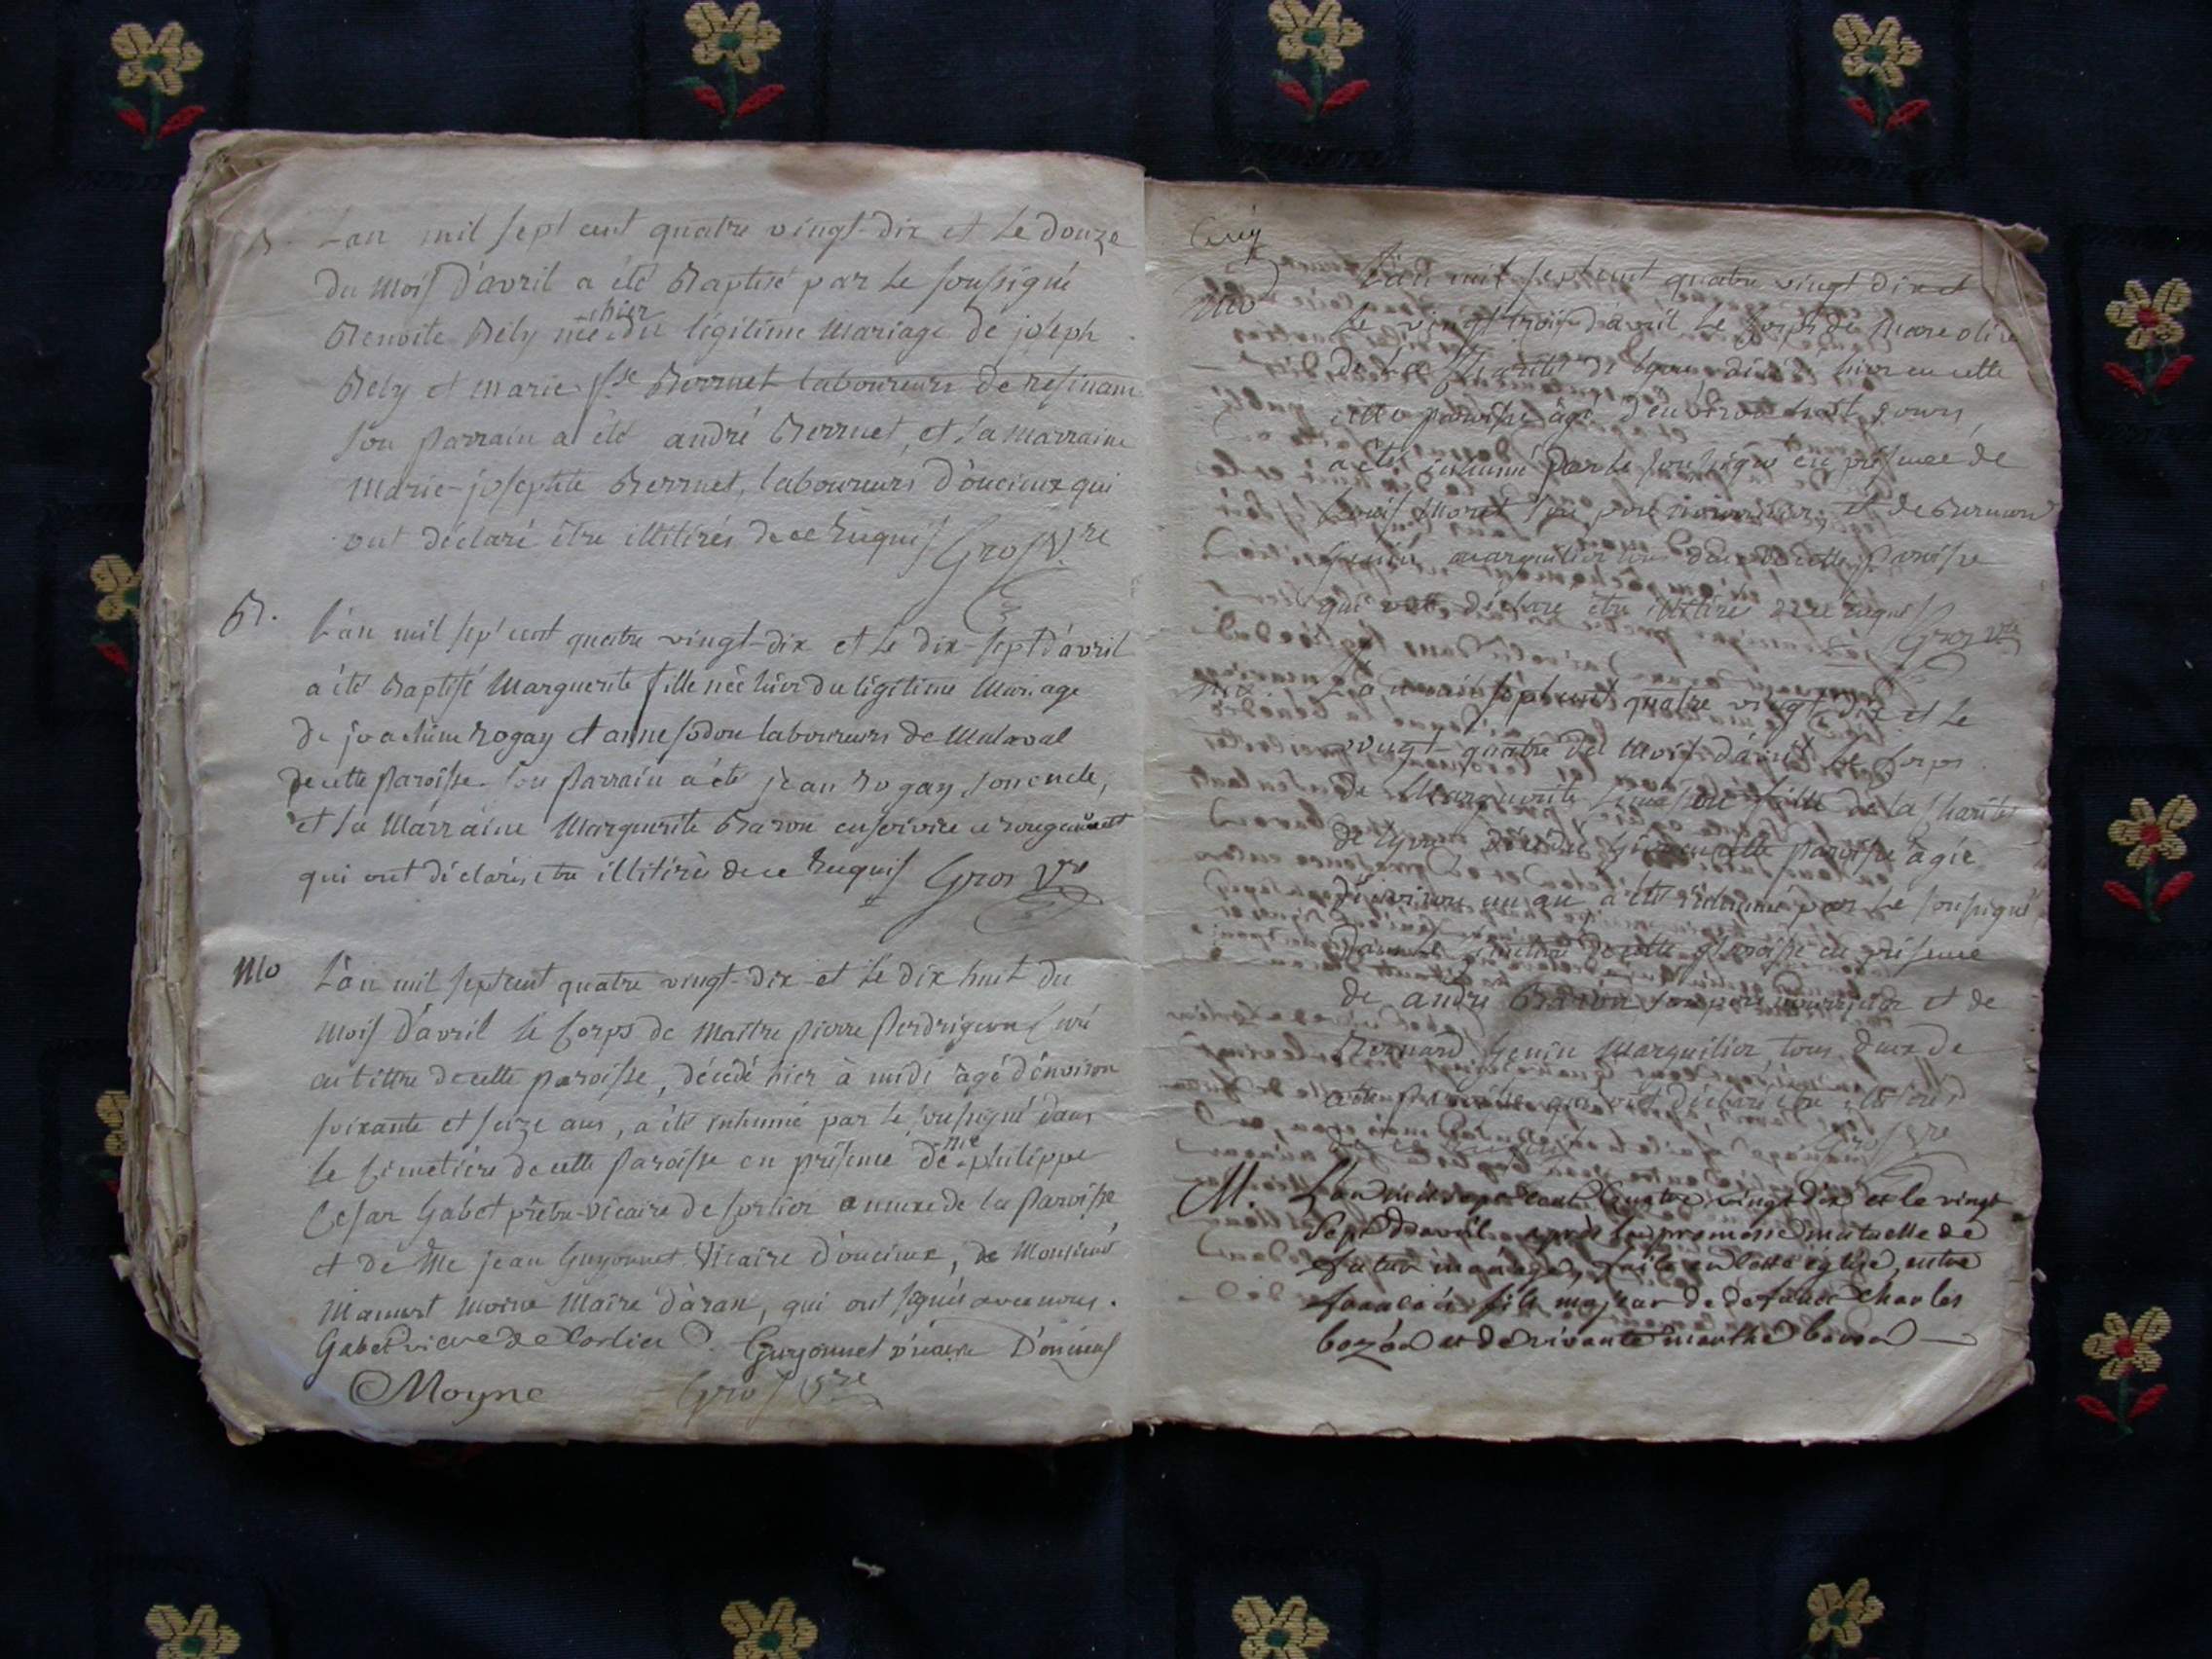 B. L'an mil sept cent quatre vingt-dix et le douze
du mois d'avril a été Baptisé par le soussigné
hier
Benoite Bely née du légitime Mariage de joseph
Bely et marie Berrnet laboureurs de resinam
son Parrain a été andré Berrnet, et la marraine
Marie-josephte Berrnet, laboureurs d'oncieux qui
ont déclaré être illitérés de ce requis Gros Vre
B. L'an mil sept cent quatre vingt-dix et le dix-sept d'avril
a été Baptisé Marguerite fille née hier du légitime Mariage
de joachim rogay et anne sodon laboureurs de Malaval
de cette Paroisse. son Parrain a été jean rogay son oncle,
et sa Marraine Marguerite Baron
qui ont déclarés être illitirés de ce requis Gros Vre
Mo L'an mil sept cent quatre vingt-dix et le dix huit du
mois d'avril le Corps de Maitre pierre Perdrigeon Curé
en tittre de cette paroisse, décédé hier à midi âgé d'environ
soixante et seize ans, a été inhumé par le soussigné dans
le Cimetière de cette Paroisse en présence de Me philippe
César Gabet prêtre-vicaire de Corlier annexe de la Paroisse
et de Me jean Guyonnet Vicaire d'oncieux, de Monsieur
Moine Maire d'aran, qui ont signés avec nous.
Gabet vicaire de Corlier. Guyonnet vicaire D'oncieux
Moyne Gros Vre
Mo L'an mil sept cent quatre vingt dix et
le vingt trois d'avril le Corps de
de La Charité de lyon décédé hier en cette
cette paroisse âgé d'environ huit jours,
a été inhumé par le soussigné en présence de
Louis Moret son père nourricier, et de Bernard
Genin marguilier tous deux de cette Paroisse
qui ont déclaré être illitiré de ce requis
Gros Vre
L'an mil sept cent quatre vingt dix et le
vingt-quatre du Mois d'avril le Corps
de Marguerite fille de la Charité
de lyon décédée hier en cette Paroisse âgée
d'environ un an a été inhumé par le soussigné
dans le Cimetière de cette Paroisse en présence
de andré Baron son père nourricier et de
Bernard Genin Marguilier tous deux de
cette paroisse qui ont déclaré être illitérés
de ce requis Gros Vre
M. L'an mil sept cent quatre vingt dix et le vingt
sept d'avril après la promesse mutuelle de
futur mariage, faite en cette église, entre
françois fils majeur de defunt Charles
bozon et de vivante marthe baron